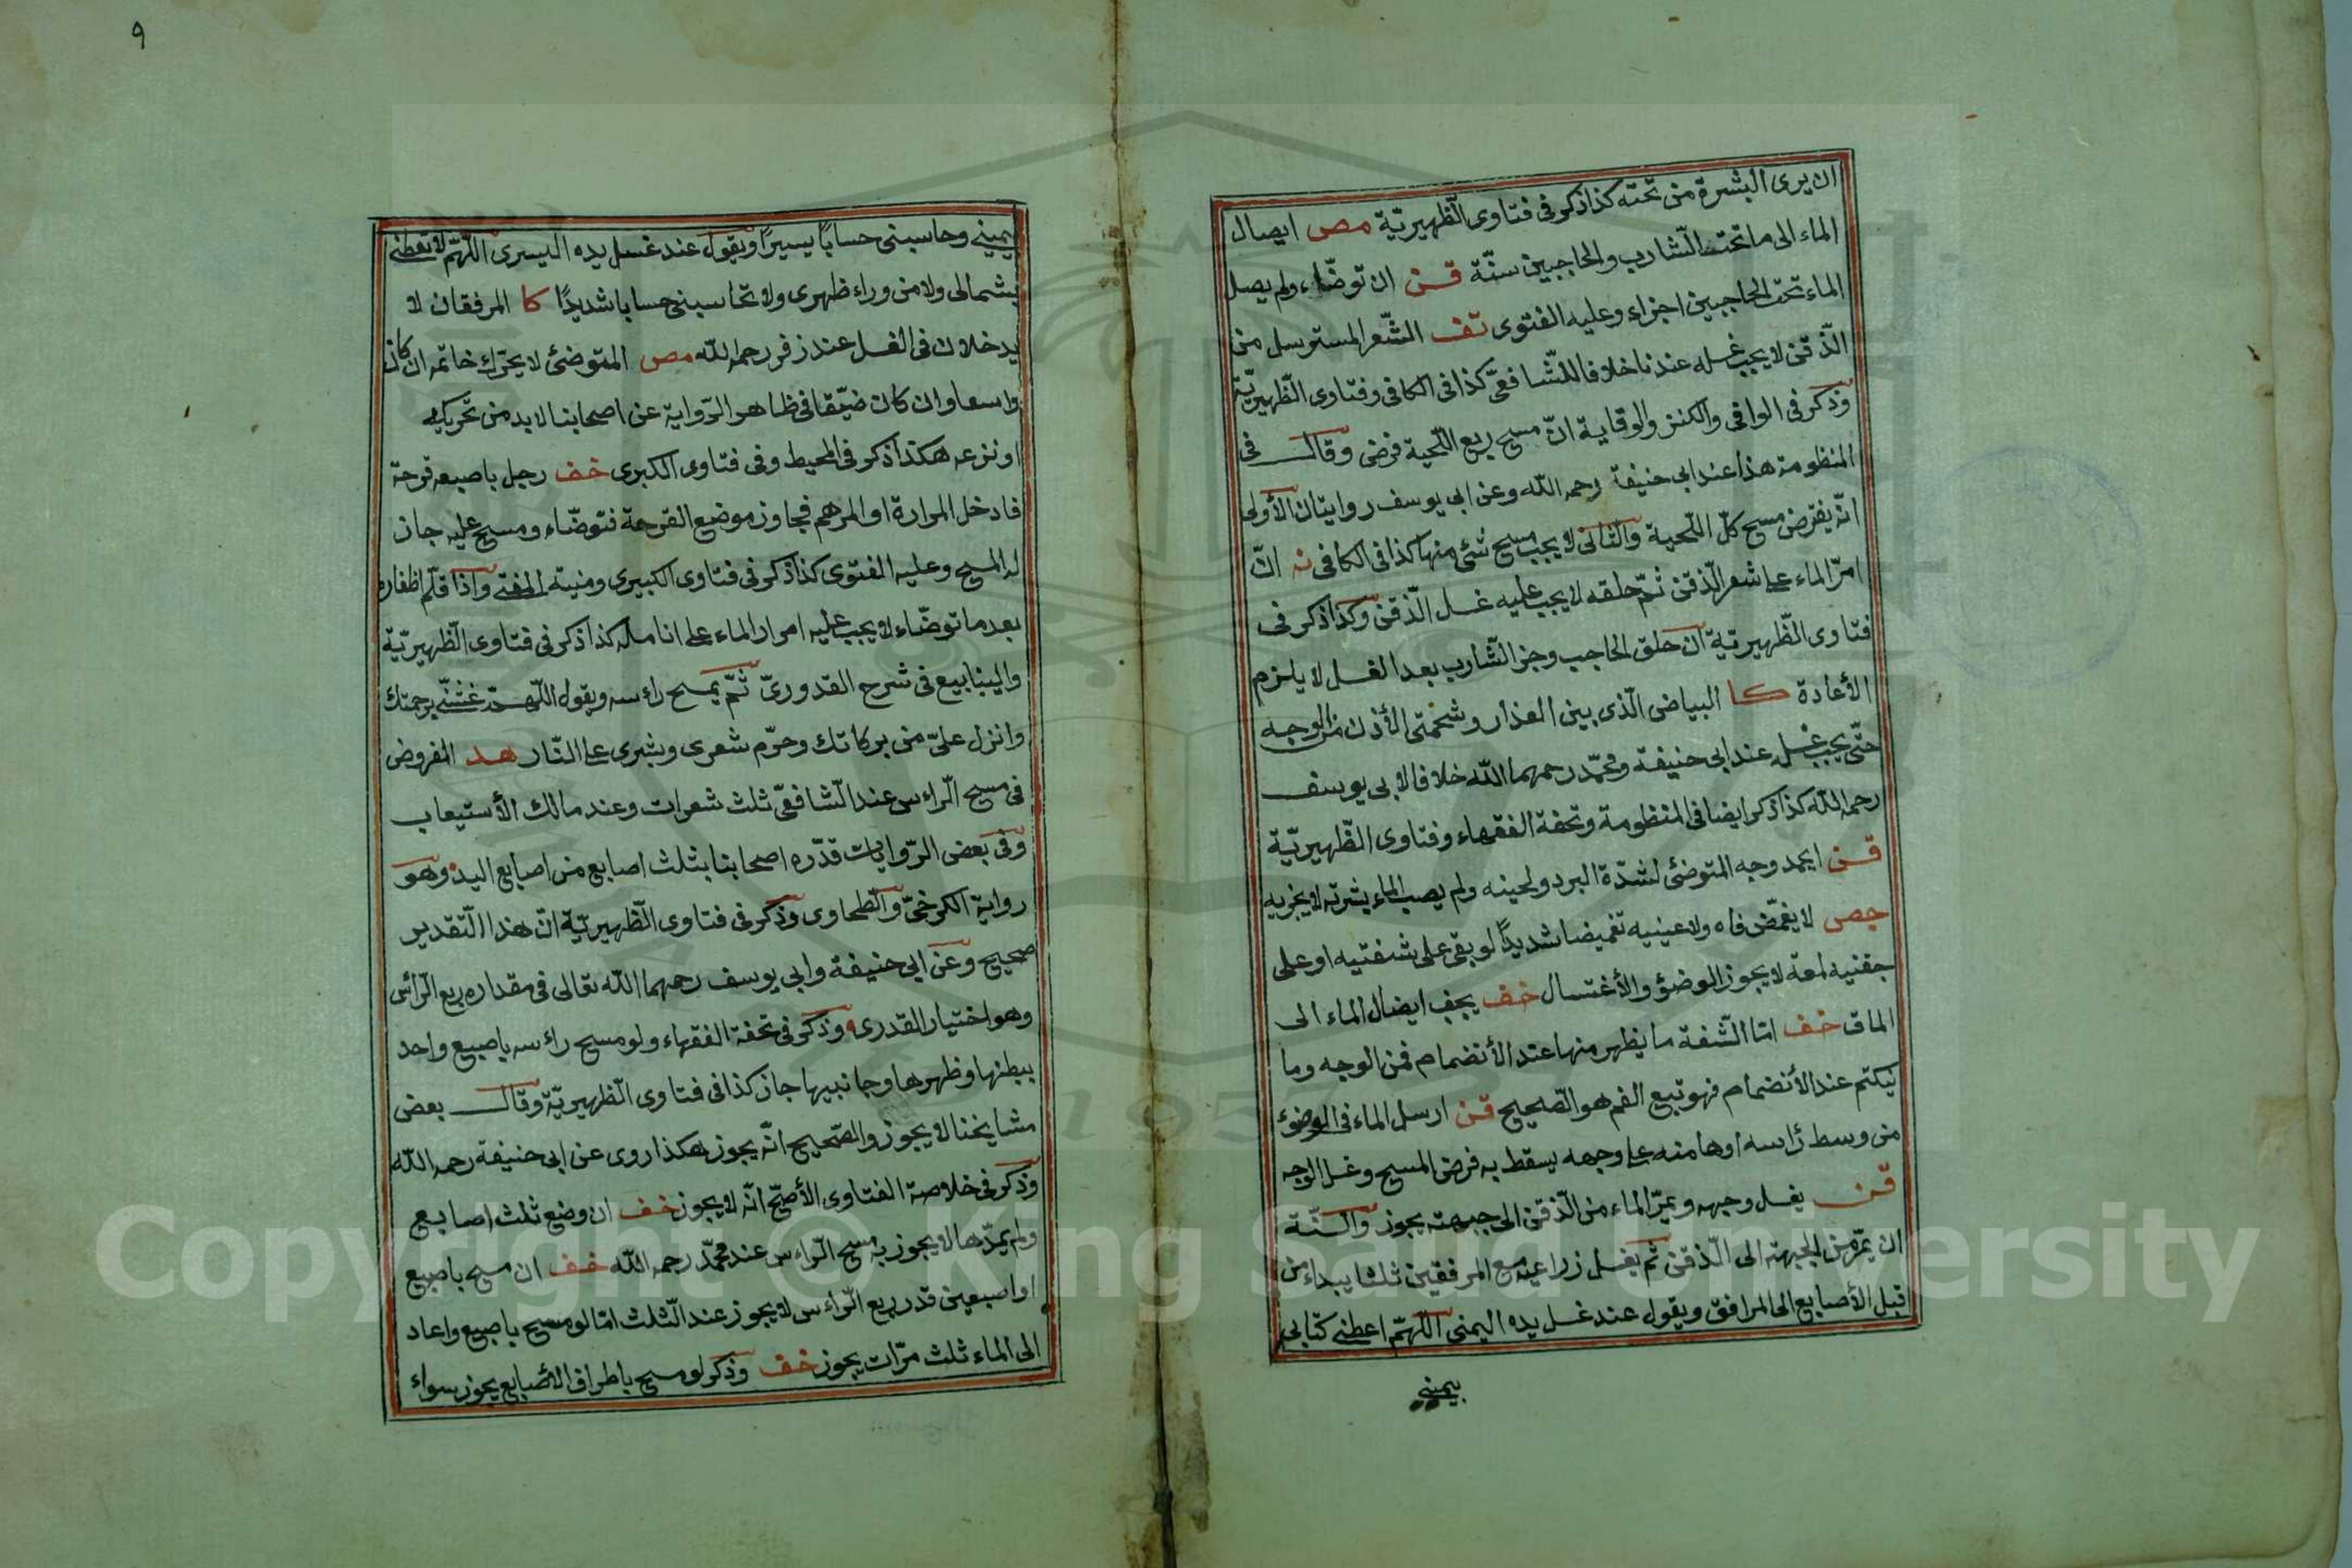 ان يرى البشرة من تحته كذا ذكر فى فتاوى الظهيريّة مص ايصال
الماء الى ما تحت الشّارب والحاجبين سنّة قن ان توضّاء ولم يصل
الماء تحت الحاجبين اجزاء وعليه الفتوى تف الشّعر المسترسل من
الذّقن لا يجب غسله عندنا خلافا للشّافعىّ كذا فى الكافى وفتاوى الظّهيريّة
وذكر فى الوافى والكنز والوقاية انّ مسح ربع اللّحية فرض وقال فى
المنظومة هذا عند ابى حنيفة رحمه الله وعن ابى يوسف روايتان الأولى
انّه يفترض مسح كلّ اللّحية والثّانى لا يجب مسح شئ منها كذا فى الكافى نه انّ
امرّ الماء على شعر الذّقن ثمّ حلقه لا يجب عليه غسل الذّقن وكذا ذكر فى
فتاوى الظّهيريّة ان حلق الحاجب وجز الشّارب بعد الغسل لا يلزم
الأعادة كا البياض الّذى بين العذار وشحمتى الأذن من الوجه
حتّى يجب غسله عند ابى حنيفة ومحمّد رحمهما الله خلافا لابى يوسف
رحمه الله كذا ذكر ايضا فى المنظومة وتحفة الفقهاء وفتاوى الظّهيريّة
قن ايجمد وجه المتوضئ لشدّة البرد ولحينه ولم يصب الماء بشرته لا يجزيه
جص لا يغمّض فاه ولا عينيه تغميضا شديدًا لو بقى على شفتيه او على
جفنيه لمعة لا يجوز الوضؤ والأغتسال خف يجب ايصال الماء الى
الماق خف امّا الشّفة ما يظهر منها عند الأنضمام فمن الوجه وما
يتكتم عند الأنضمام فهو تبع الفم هو الصّحيح قن ارسل الماء فى الوضوء
من وسط رأسه او هامته على وجهه يسقط به فرض المسح وغسل الوجه
قن يغسل وجهه ويمرّ الماء من الذّقن الى جبهته يجوز والسّنّة
ان يمرّه من الجبهة الى الذّقن ثم يغسل زراعيه مع المرفقين ثلثا يبداء من
قبل الأصابع الى المرافق ويقول عند غسل يده اليمنى اللّهمّ اعطنى كتابى
بيمينى
9
بيمينى وحاسبنى حسابًا يسيرًا ويقول عند غسل يده اليسرى اللّهمّ لا تعطنى
بشمالى ولا من وراء ظهرى ولا تحاسبنى حسابا شديدًا كا المرفقان لا
يدخلان فى الغسل عند زفر رحمه الله مص المتوضئ لا يحرّك خاتمه ان كان
واسعا وان كان ضيّقا فى ظاهر الرّواية عن اصحابنا لا بد من تحريكه
او نزعه هكذا ذكر فى المحيط وفى فتاوى الكبرى خف رجل باصبعه قرحة
فادخل المرارة او المرهم فجاوز موضع القرحة فتوضّاء ومسح عليه جاز
له المسح وعليه الفتوى كذا ذكر فى فتاوى الكبرى ومنية المفتى واذا قلّم اظفاره
بعد ما توضّاء لا يجب عليه امرار الماء على انامله كذا ذكر فى فتاوى الظّهيريّة
والينابيع فى شرح القدورىّ ثمّ يمسح راءسه ويقول اللّهمّ غشّنى برحمتك
وانزل علىّ من بركاتك وحرّم شعرى وبشرى على النّار هد المفروض
فى مسح الرّاءس عند الشّافعىّ ثلث شعرات وعند مالك الأستيعاب
وفى بعض الرّوايات قدّره اصحابنا بثلث اصابع من اصابع اليد وهو
رواية الكرخىّ والطّحاوى وذكر فى فتاوى الظّهيريّة انّ هذا التّقدير
صحيح وعن ابى حنيفة وابى يوسف رحمهما الله تعالى فى مقداره ربع الرّأس
وهو اختيار القدرى وذكر فى تحفة الفقهاء ولو مسح راءسه باصبع واحد
ببطنها وظهرها وجانبيها جاز كذا فى فتاوى الظّهيريّة وقال بعض
مشايخنا لا يجوز والصّحيح انّه يجوز هكذا روى عن ابى حنيفة رحمه الله
وذكر فى خلاصة الفتاوى الأصحّ انّه لا يجوز خف ان وضع ثلث اصابع
ولم يمدّها لا يجوز به مسح الرّاءس عند محمّد رحمه الله خف ان مسح باصبع
او اصبعين قدر ربع الرّاءس لا يجوز عند الثّلث امّا لو مسح باصبع واعاد
الى الماء ثلث مرّات يجوز خف وذكر لو مسح باطراف الأصابع يجوز سواء
Copyright © King Saud University
1957